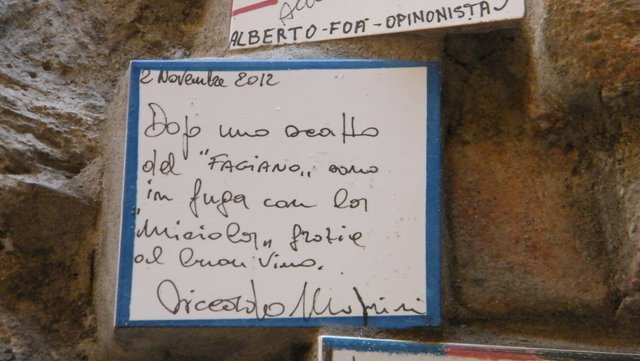 ALBERTO-FOA'-OPINONISTA
2 Novembre 2012
Dopo uno scatto
del "FAGIANO" sono
in fuga con la
"Miciola" grazie
al buon vino.